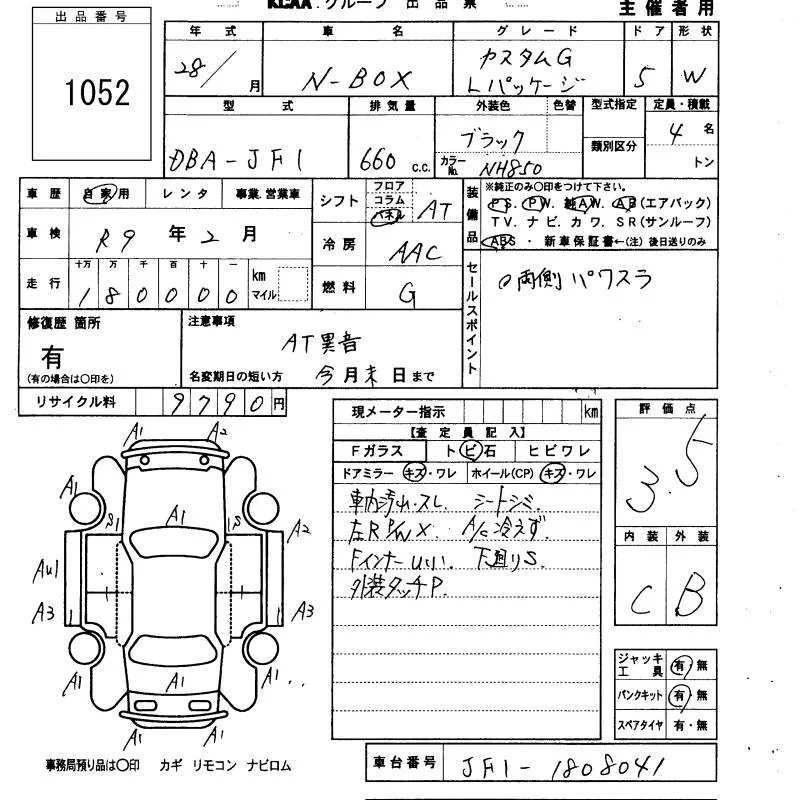 KCAA.グループ 出品票
主催者用
出品番号
1052
年式 車名 グレード ドア 形状
28/ 月 N-BOX カスタムG Lパッケージ 5 W
型式 排気量 外装色 色替 型式指定 定員・積載
DBA-JF1 660 c.c. ブラック 類別区分 4 名
カラーNo. NH850 トン
車歴 自家用 レンタ 事業.営業車
車検 R9 年 2 月
走行 十万 万 千 百 十 一 km マイル
180000
シフト フロア コラム パネル AT
冷房 AAC
燃料 G
装備品
※純正のみ〇印をつけて下さい。
PS. PW. 純AW. AB(エアバック)
TV. ナビ. カワ. SR(サンルーフ)
ABS ・ 新車保証書←(注) 後日送りのみ
セールスポイント
○両側パワスラ
修復歴 箇所
有
(有の場合は〇印を)
注意事項
AT異音
名変期日の短い方 今月末日まで
リサイクル料 9790円
現メーター指示 km
【査定員記入】
Fガラス トビ石 ヒビワレ
ドアミラー キズ・ワレ ホイール(CP) キズ・ワレ
車内汚れ・スレ. シートシミ.
左R P/W X. A/C冷えず.
Fインナーuい. 下廻りS.
外装タッチP.
評価点
3.5
内装 外装
C B
ジャッキ工具 有・無
パンクキット 有・無
スペアタイヤ 有・無
A1 A2
A1 A1
S1 S
A2
Au1
A3 A3
A1 A1 A1
A1 A1
事務局預り品は〇印 カギ リモコン ナビロム
車台番号 JF1-1808041